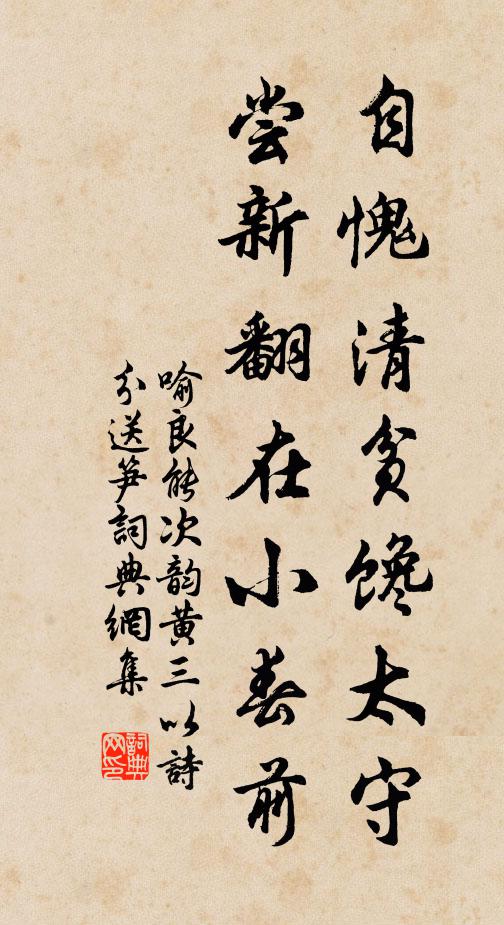 自愧清贫馋太守
尝新翻在小春前
喻良能次韵黄三以詩
分送笋詞典網集
詞典网印